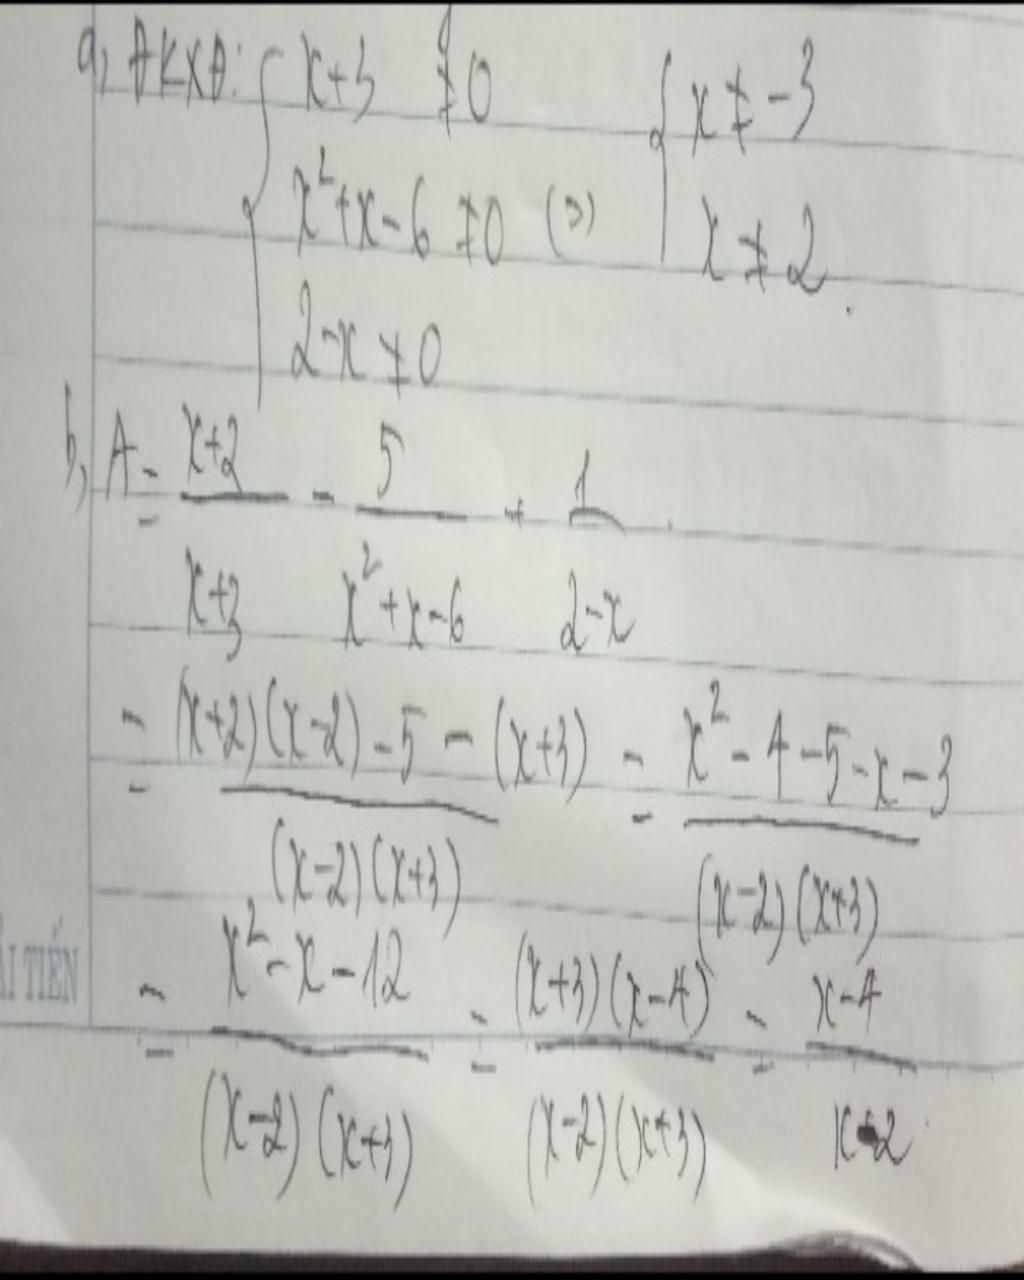 a, ĐKXĐ: { x+3 ≠0 { x ≠ -3
x²+x-6 ≠0 (=) x ≠ 2.
2-x ≠0
b, A = x+2 / x+3 - 5 / x²+x-6 + 1 / 2-x
= (x+2)(x-2) -5 - (x+3) / (x-2)(x+3) = x² - 4 -5 -x -3 / (x-2)(x+3)
= x² - x - 12 / (x-2)(x+3) = (x+3)(x-4) / (x-2)(x+3) = x-4 / x-2
TIẾN